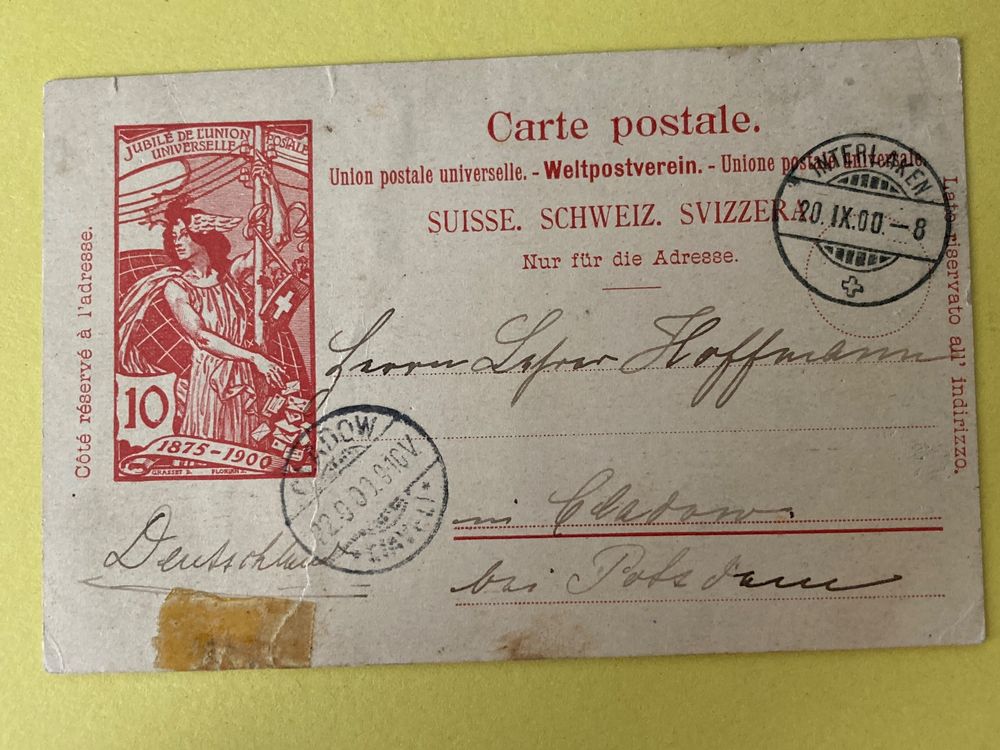 Carte postale.
Union postale universelle. - Weltpostverein. - Unione postale universale.
SUISSE. SCHWEIZ. SVIZZERA.
Nur für die Adresse.
Côté réservé à l'adresse.
Lato riservato all' indirizzo.
JUBILÉ DE L'UNION POSTALE
UNIVERSELLE
10
1875-1900
GRASSET D. FLORIAN S.
INTERLAKEN
20.IX.00.-8
Herrn Lehrer Hoffmann
in Cladow.
bei Potsdam
Deutschland
CLADOW
22.9.00.9-10V
(HAVEL)